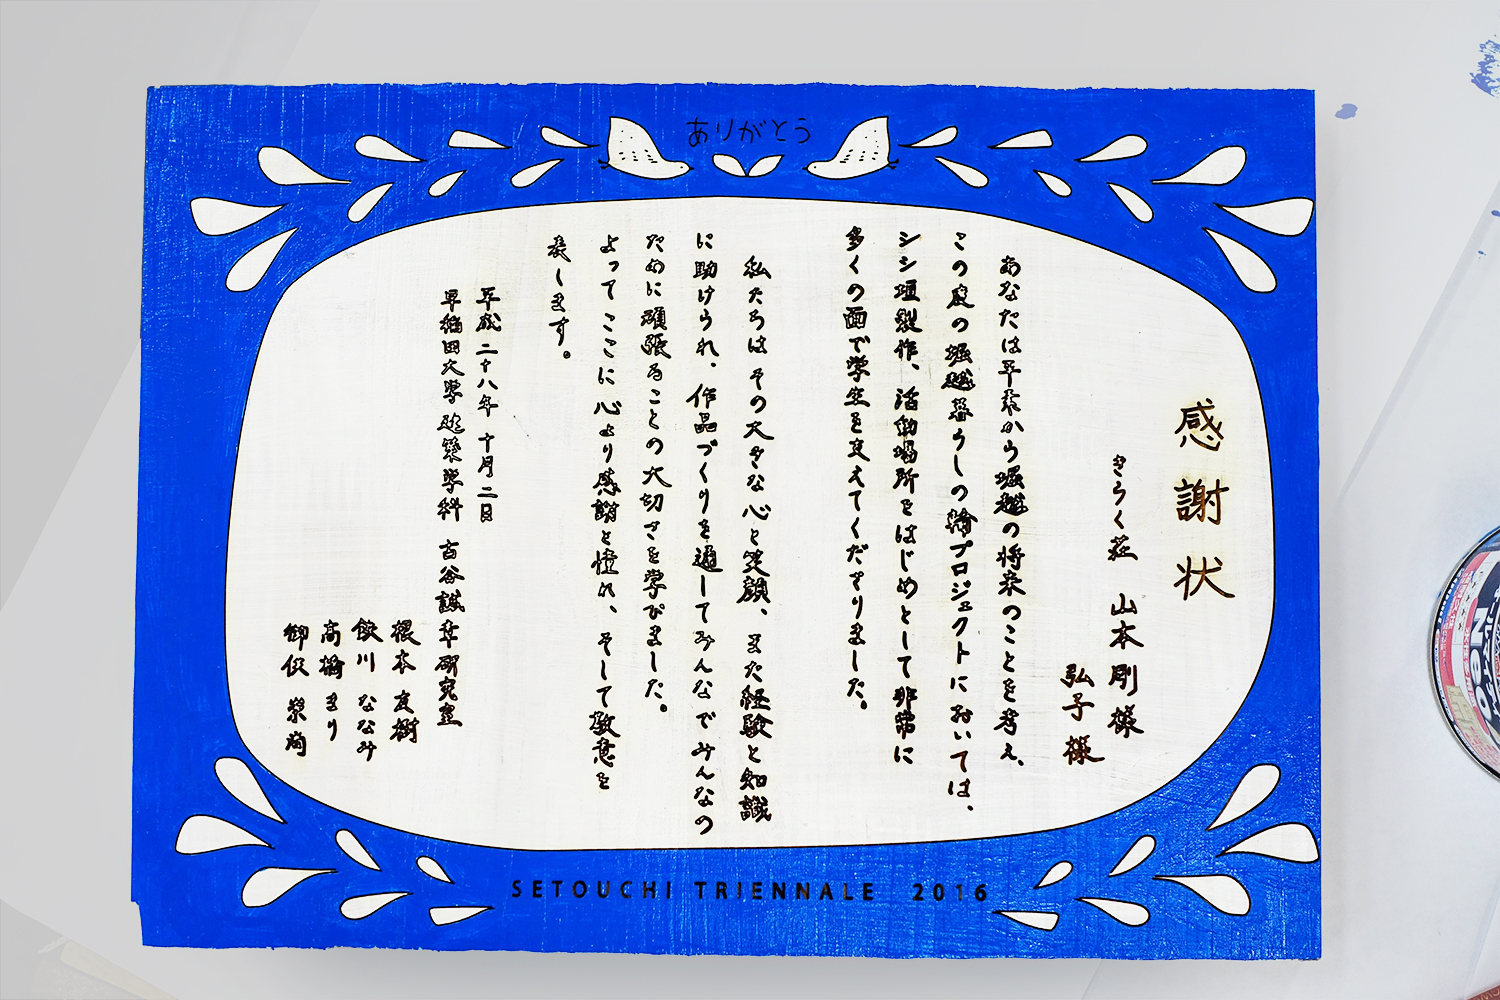 ありがとう
感謝状
きらく荘 山本剛様
弘子様
あなたは平素から堀越の将来のことを考え、
この度の堀越暮らしの輪プロジェクトにおいては、
シシ垣製作、活動場所をはじめとして非常に
多くの面で学生を支えてくださりました。
私たちはその大きな心と笑顔、また経験と知識
に助けられ、作品づくりを通してみんなでみんなの
ために頑張ることの大切さを学びました。
よってここに心より感謝と憧れ、そして敬意を
表します。
平成二十八年 十月二日
早稲田大学建築学科 古谷誠章研究室
根本友樹
飯川ななみ
高橋まり
御供
SETOUCHI TRIENNALE 2016